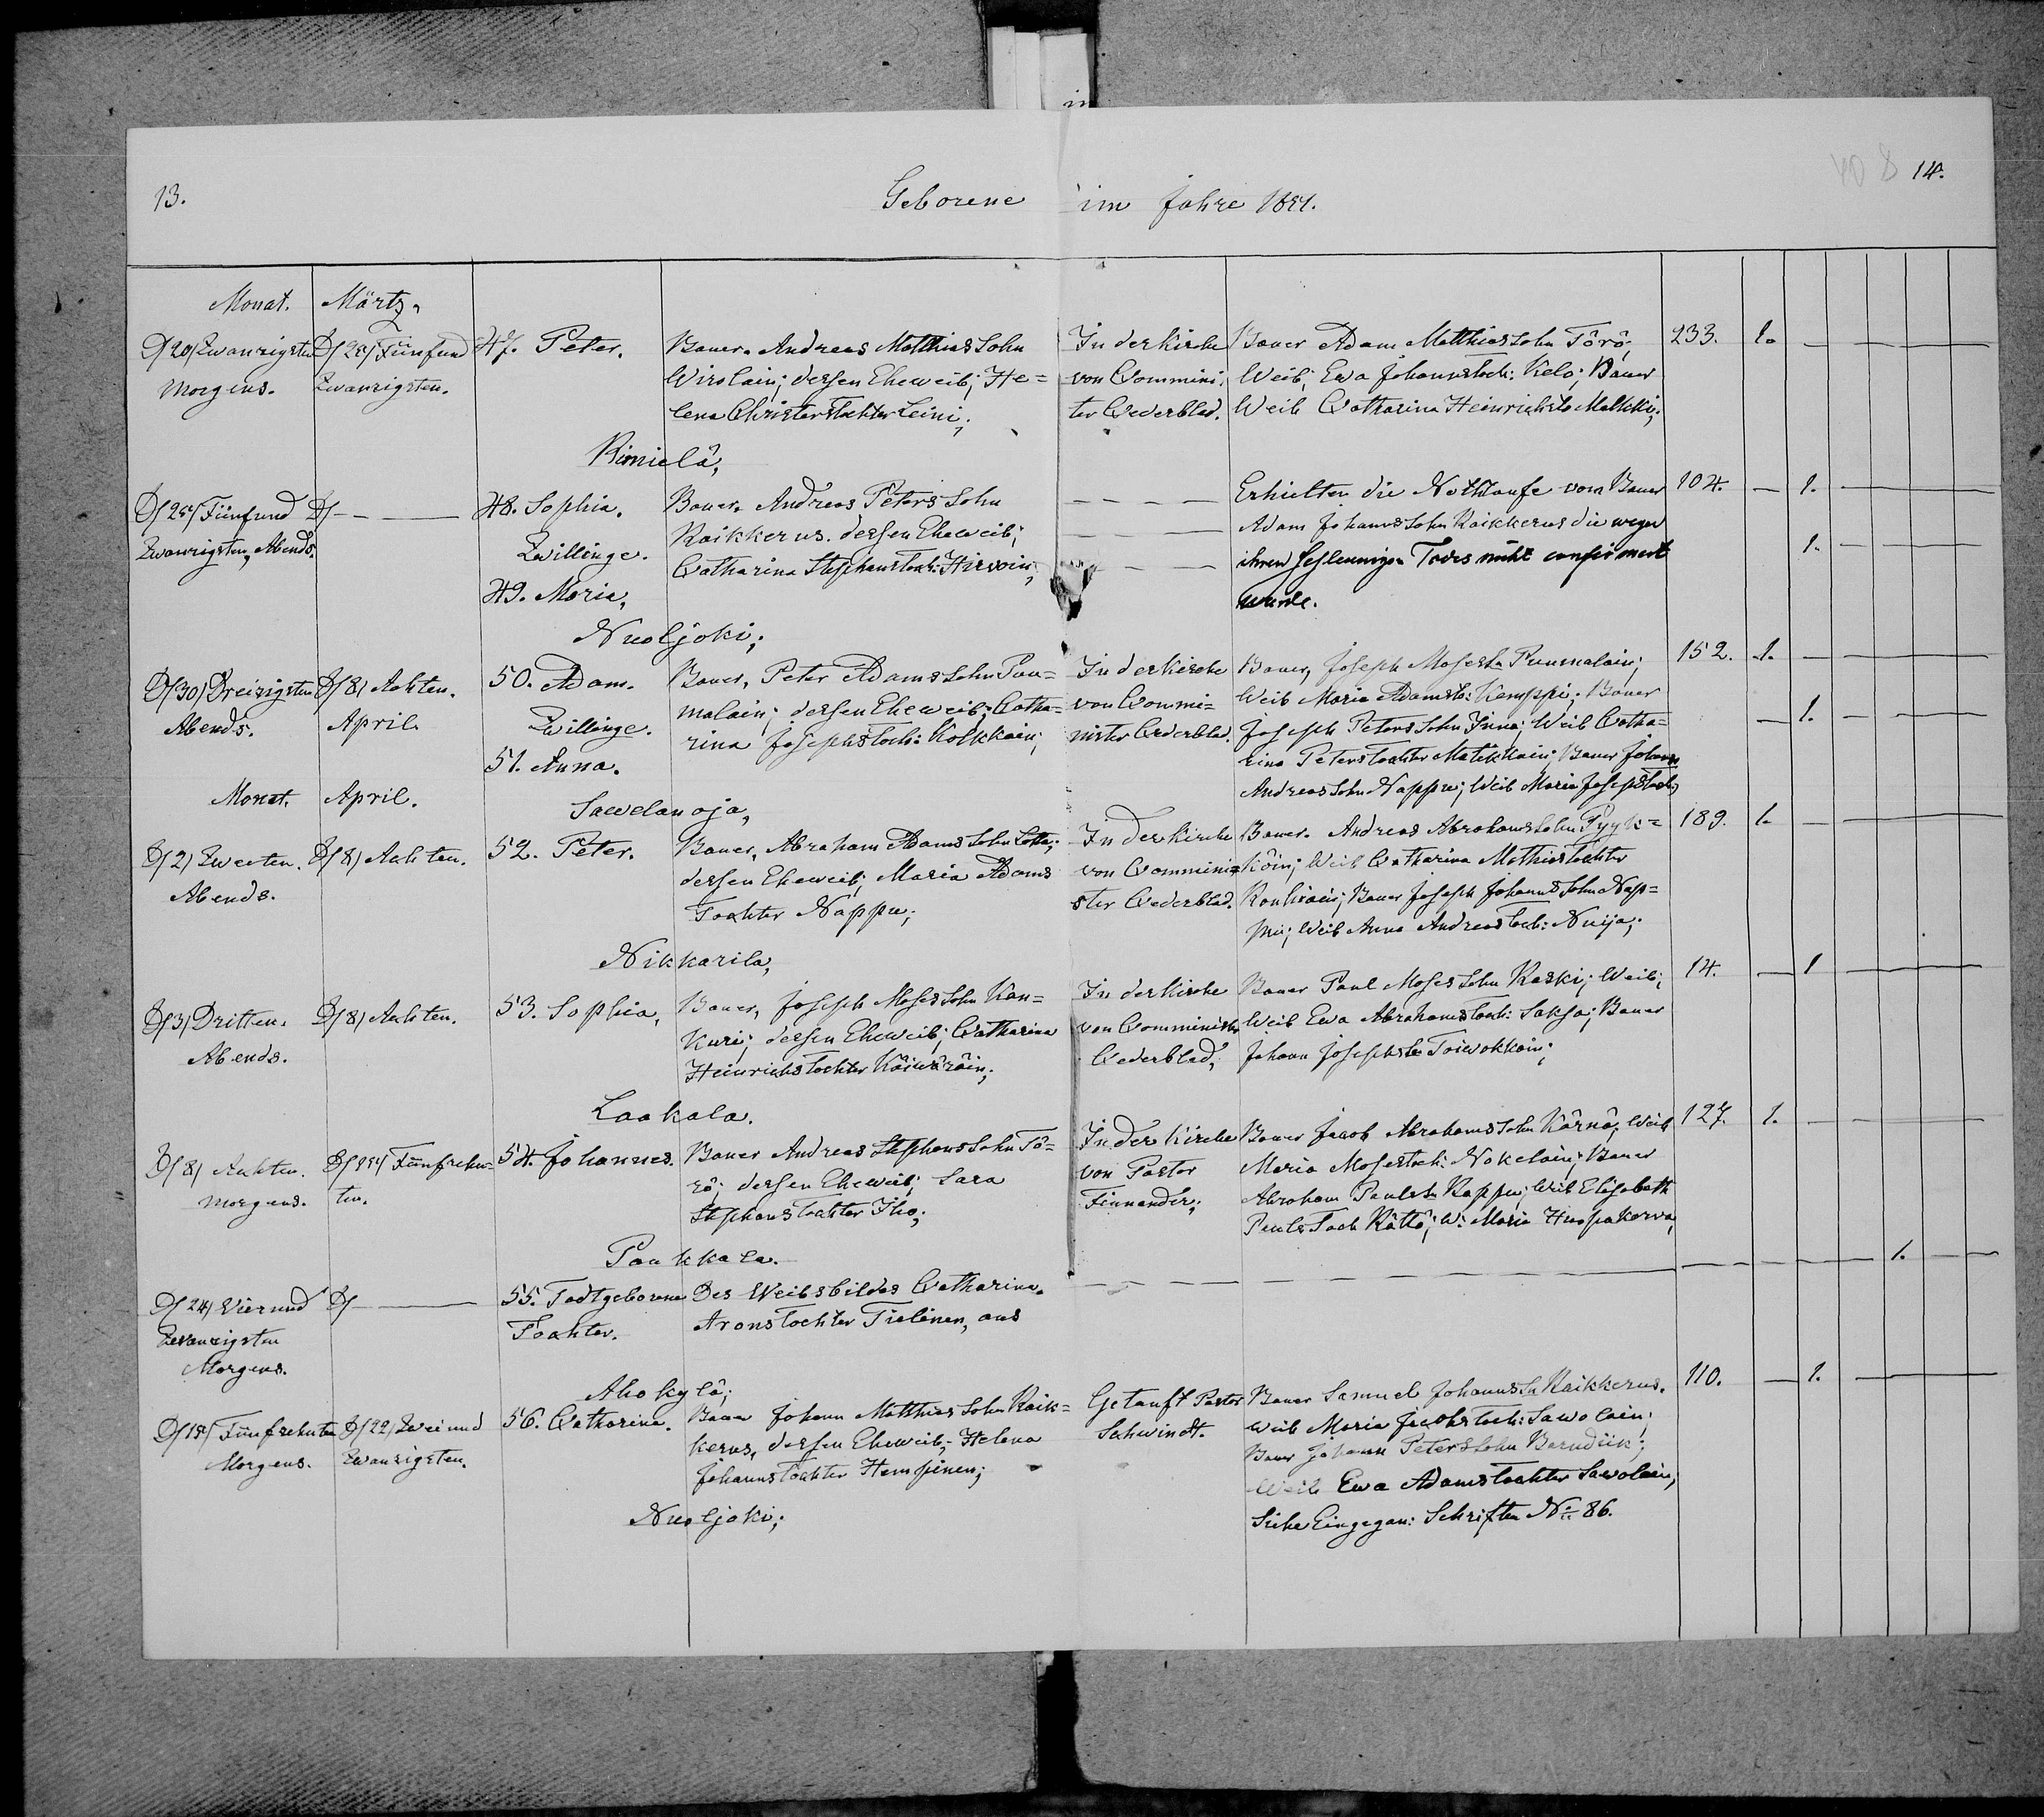 13.
Geborene im Jahre 1851.
14.
Monat. Märtz.
D/20/ Zwanzigsten
Morgens.
D/25/ Fünfund
Zwanzigsten.
47. Peter.
Bauer. Andreas Matthias Sohn
Wirolain; dessen Eheweib; He=
lena Christerstochter Leini;
In der Kirche
von Commini
ter Cederblad.
Bauer Adam Matthiassohn Törö,
Weib; Ewa Johannstoch: Kelo; Bauer
Weib Catharina Heinrichsto Malkki;
233. 1.
Rimielä,
D/25/ Fünfund
Zwanzigsten, Abends.
D/
48. Sophia.
Zwillinge.
49. Maria,
Bauer. Andreas Peters Sohn
Raikkerus. dessen Eheweib;
Catharina Stephanstoch: Hirvoin,
Erhielten die Nothtaufe vom Bauer
Adam Johannssohn Raikkerus die wegen
ihren schleunigen Todes nicht confirmert
wurde.
104. 1.
1.
Nuoljoki;
D/30/ Dreizigsten
Abends.
D/8/ Achten.
April.
50. Adam.
Zwillinge.
51. Anna.
Bauer, Peter Adamssohn Puu=
malain; dessen Eheweib; Catha=
rina Josephstoch: Kolkkain;
In der Kirche
von Commi=
nister Cederblad.
Bauer, Joseph Moses S. Puumalain;
Weib Maria Adamsto: Kemppi; Bauer
Joseph Peters Sohn Inna; Weib Catha=
rina Peterstochter Matikkain; Bauer Johann
Andreas Sohn Nappu; Weib Maria Josepstoch;
152. 1.
1.
Monat. April.
Sawelanoja,
D/2/ Zweeten.
Abends.
D/8/ Achten.
52. Peter.
Bauer, Abraham Adams Sohn Lotta;
dessen Eheweib; Maria Adams
Tochter Nappu;
In der Kirche
von Commini=
ster Cederblad.
Bauer. Andreas Abrahams Sohn Pyyk=
köin; Weib Catharina Mathiastochter
Rouhiain; Bauer Joseph Johanns Sohn Nap=
pu; Weib Anna Andreas Toch: Nuija;
189. 1.
Nikkarila,
D/3/ Dritten.
Abends.
D/8/ Achten.
53. Sophia,
Bauer, Joseph Moses Sohn Kan=
kuri; dessen Eheweib; Catharina
Heinrichstochter Käiwäräin;
In der Kirche
von Comminister
Cederblad;
Bauer Paul Moses Sohn Kaski; Weib;
Weib Ewa Abrahamstoch: Saksa; Bauer
Johann Josephs S. Toiwokkain;
14. 1
Laakala.
D/8/ Achten.
Morgens.
D/15/ Fünfzehn=
ten.
54. Johannes.
Bauer Andreas Stephans Sohn Tö=
rö; dessen Eheweib; Sara
Stephanstochter Iho;
In der Kirche
von Pastor
Finnander;
Bauer Jacob Abrahams Sohn Kärnä; Weib
Maria Mosestoch: Nokelain; Bauer
Abraham Pauls S. Rappu; Weib Elisabeth
Pauls Toch Rättö; W: Maria Huopakorva;
127. 1.
Paukkala.
D/24/ Vierund
Zwanzigsten
Morgens.
D/
55. Todtgeborene
Tochter.
Des Weibsbildes Catharina
Aronstochter Tielinen, aus
1.
Ahokylä;
D/15/ Fünfzehnten
Morgens.
D/22/ Zweiund
Zwanzigsten.
56. Catharina.
Bauer Johann Matthias Sohn Raik=
kerus, dessen Eheweib; Helena
Johannstochter Hempinen;
Getauft Pastor
Schwindt.
Bauer Samuel Johanns S. Raikkerus.
Weib Maria Jacobstoch: Sawolain;
Bauer Johann Peters Sohn Barudiik;
Weib Ewa Adamstochter Sawolain;
Siehe Eingegan: Schriften No: 86.
110. 1.
Nuoljoki;